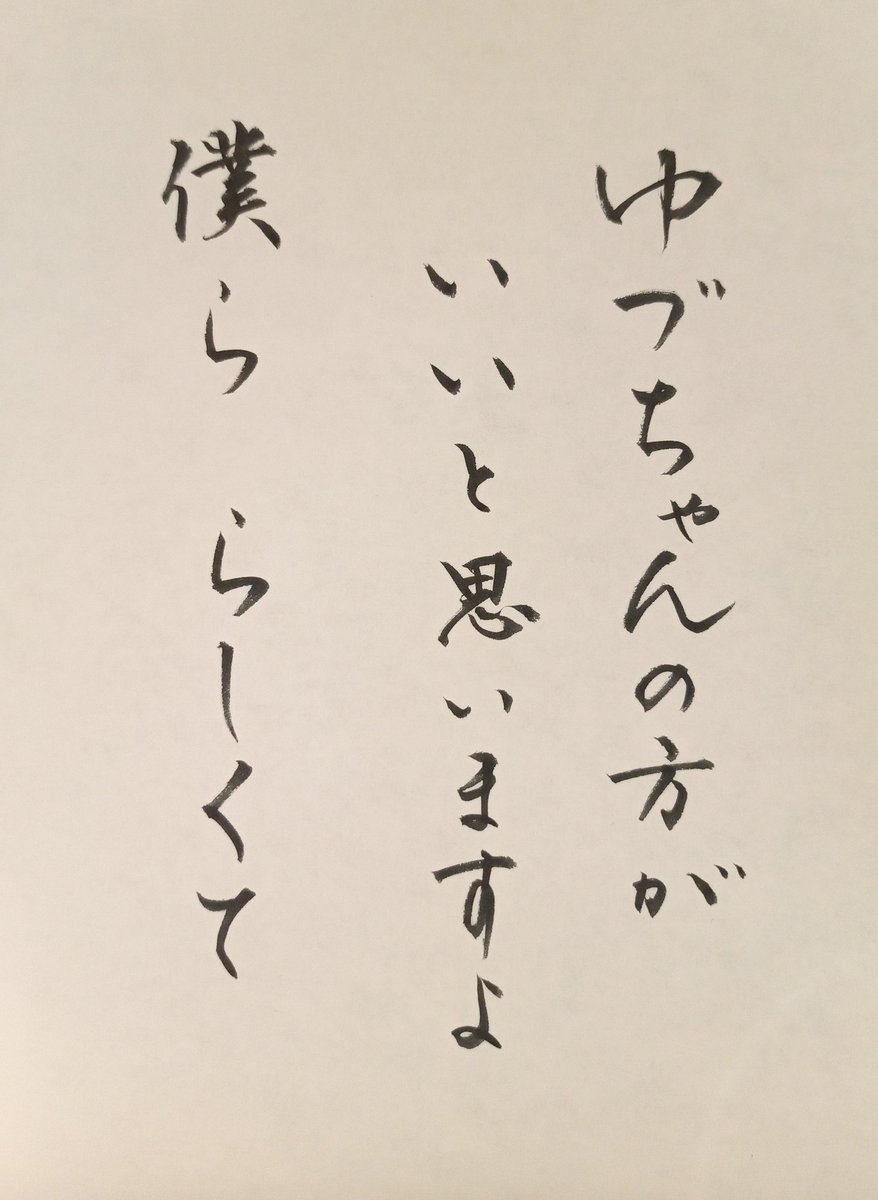 ゆづちゃんの方が
いいと思いますよ
僕ら らしくて